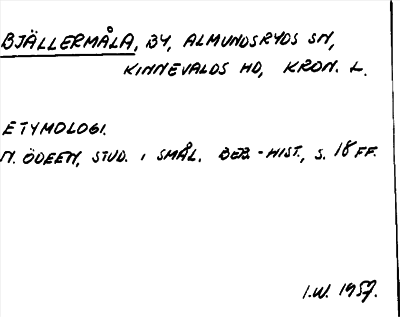 BJÄLLERMÅLA, BY, ALMUNDSRYDS SN,
KINNEVALDS HD, KRON. L.
ETYMOLOGI.
N. ÖDEEN, STUD. I SMÅL. BEB.-HIST., S. 18 FF.
I.W. 1957.